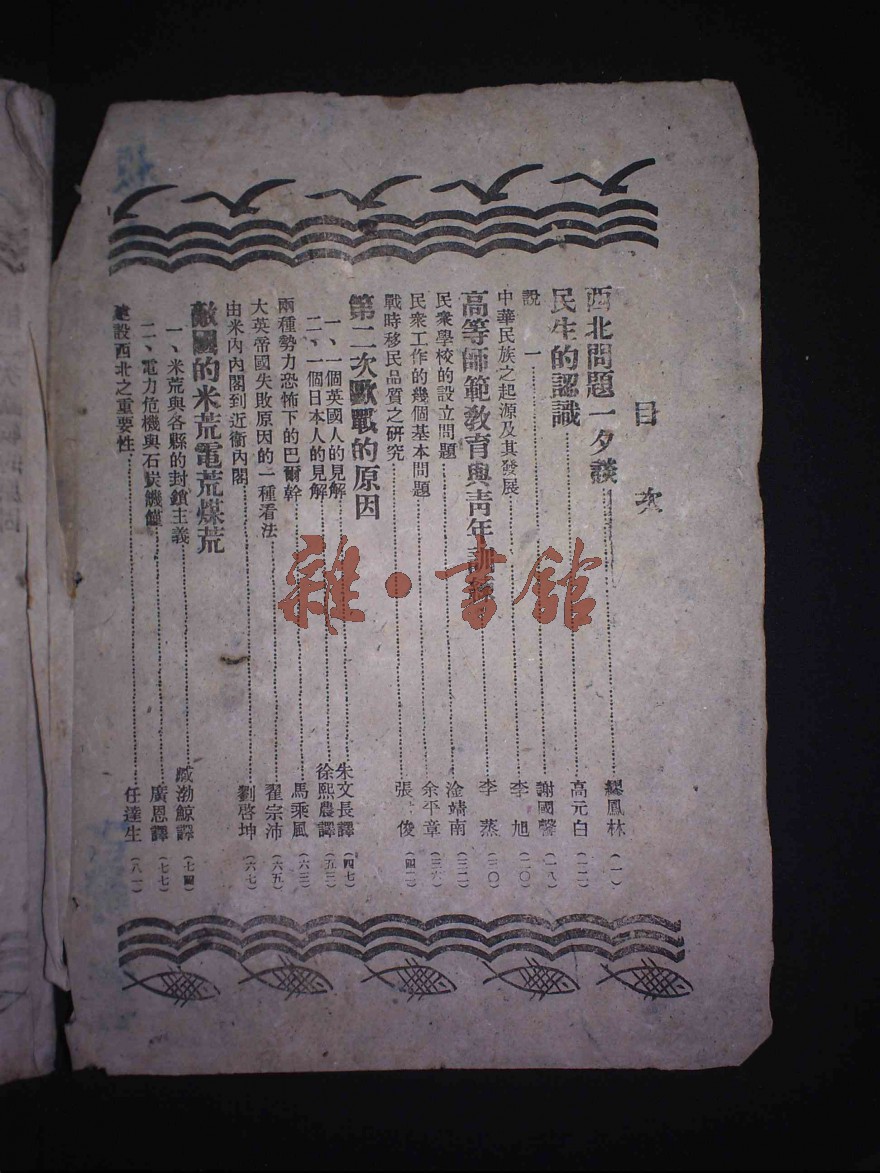 目次
西北問題一夕談……繆鳳林(一)
民生的認識……高元白(一二)
說一……謝國馨(一八)
中華民族之起源及其發展……李旭(二〇)
高等師範教育與青年訓練……李蒸(三〇)
民衆學校的設立問題……淦靖南(三二)
民衆工作的幾個基本問題……余平章(三六)
戰時移民品質之研究……張俊(四二)
第二次歐戰的原因
一、一個英國人的見解……朱文長譯(四七)
二、一個日本人的見解……徐熙農譯(五三)
兩種勢力恐怖下的巴爾幹……馬乘風(六三)
大英帝國失敗原因的一種看法……翟宗沛(六五)
由米內內閣到近衞內閣……劉啓坤(六七)
敵國的米荒電荒煤荒
一、米荒與各縣的封鎖主義……臧渤鯨譯(七四)
二、電力危機與石炭饑饉……廣恩譯(七七)
建設西北之重要性……任達生(八一)
雜·書館